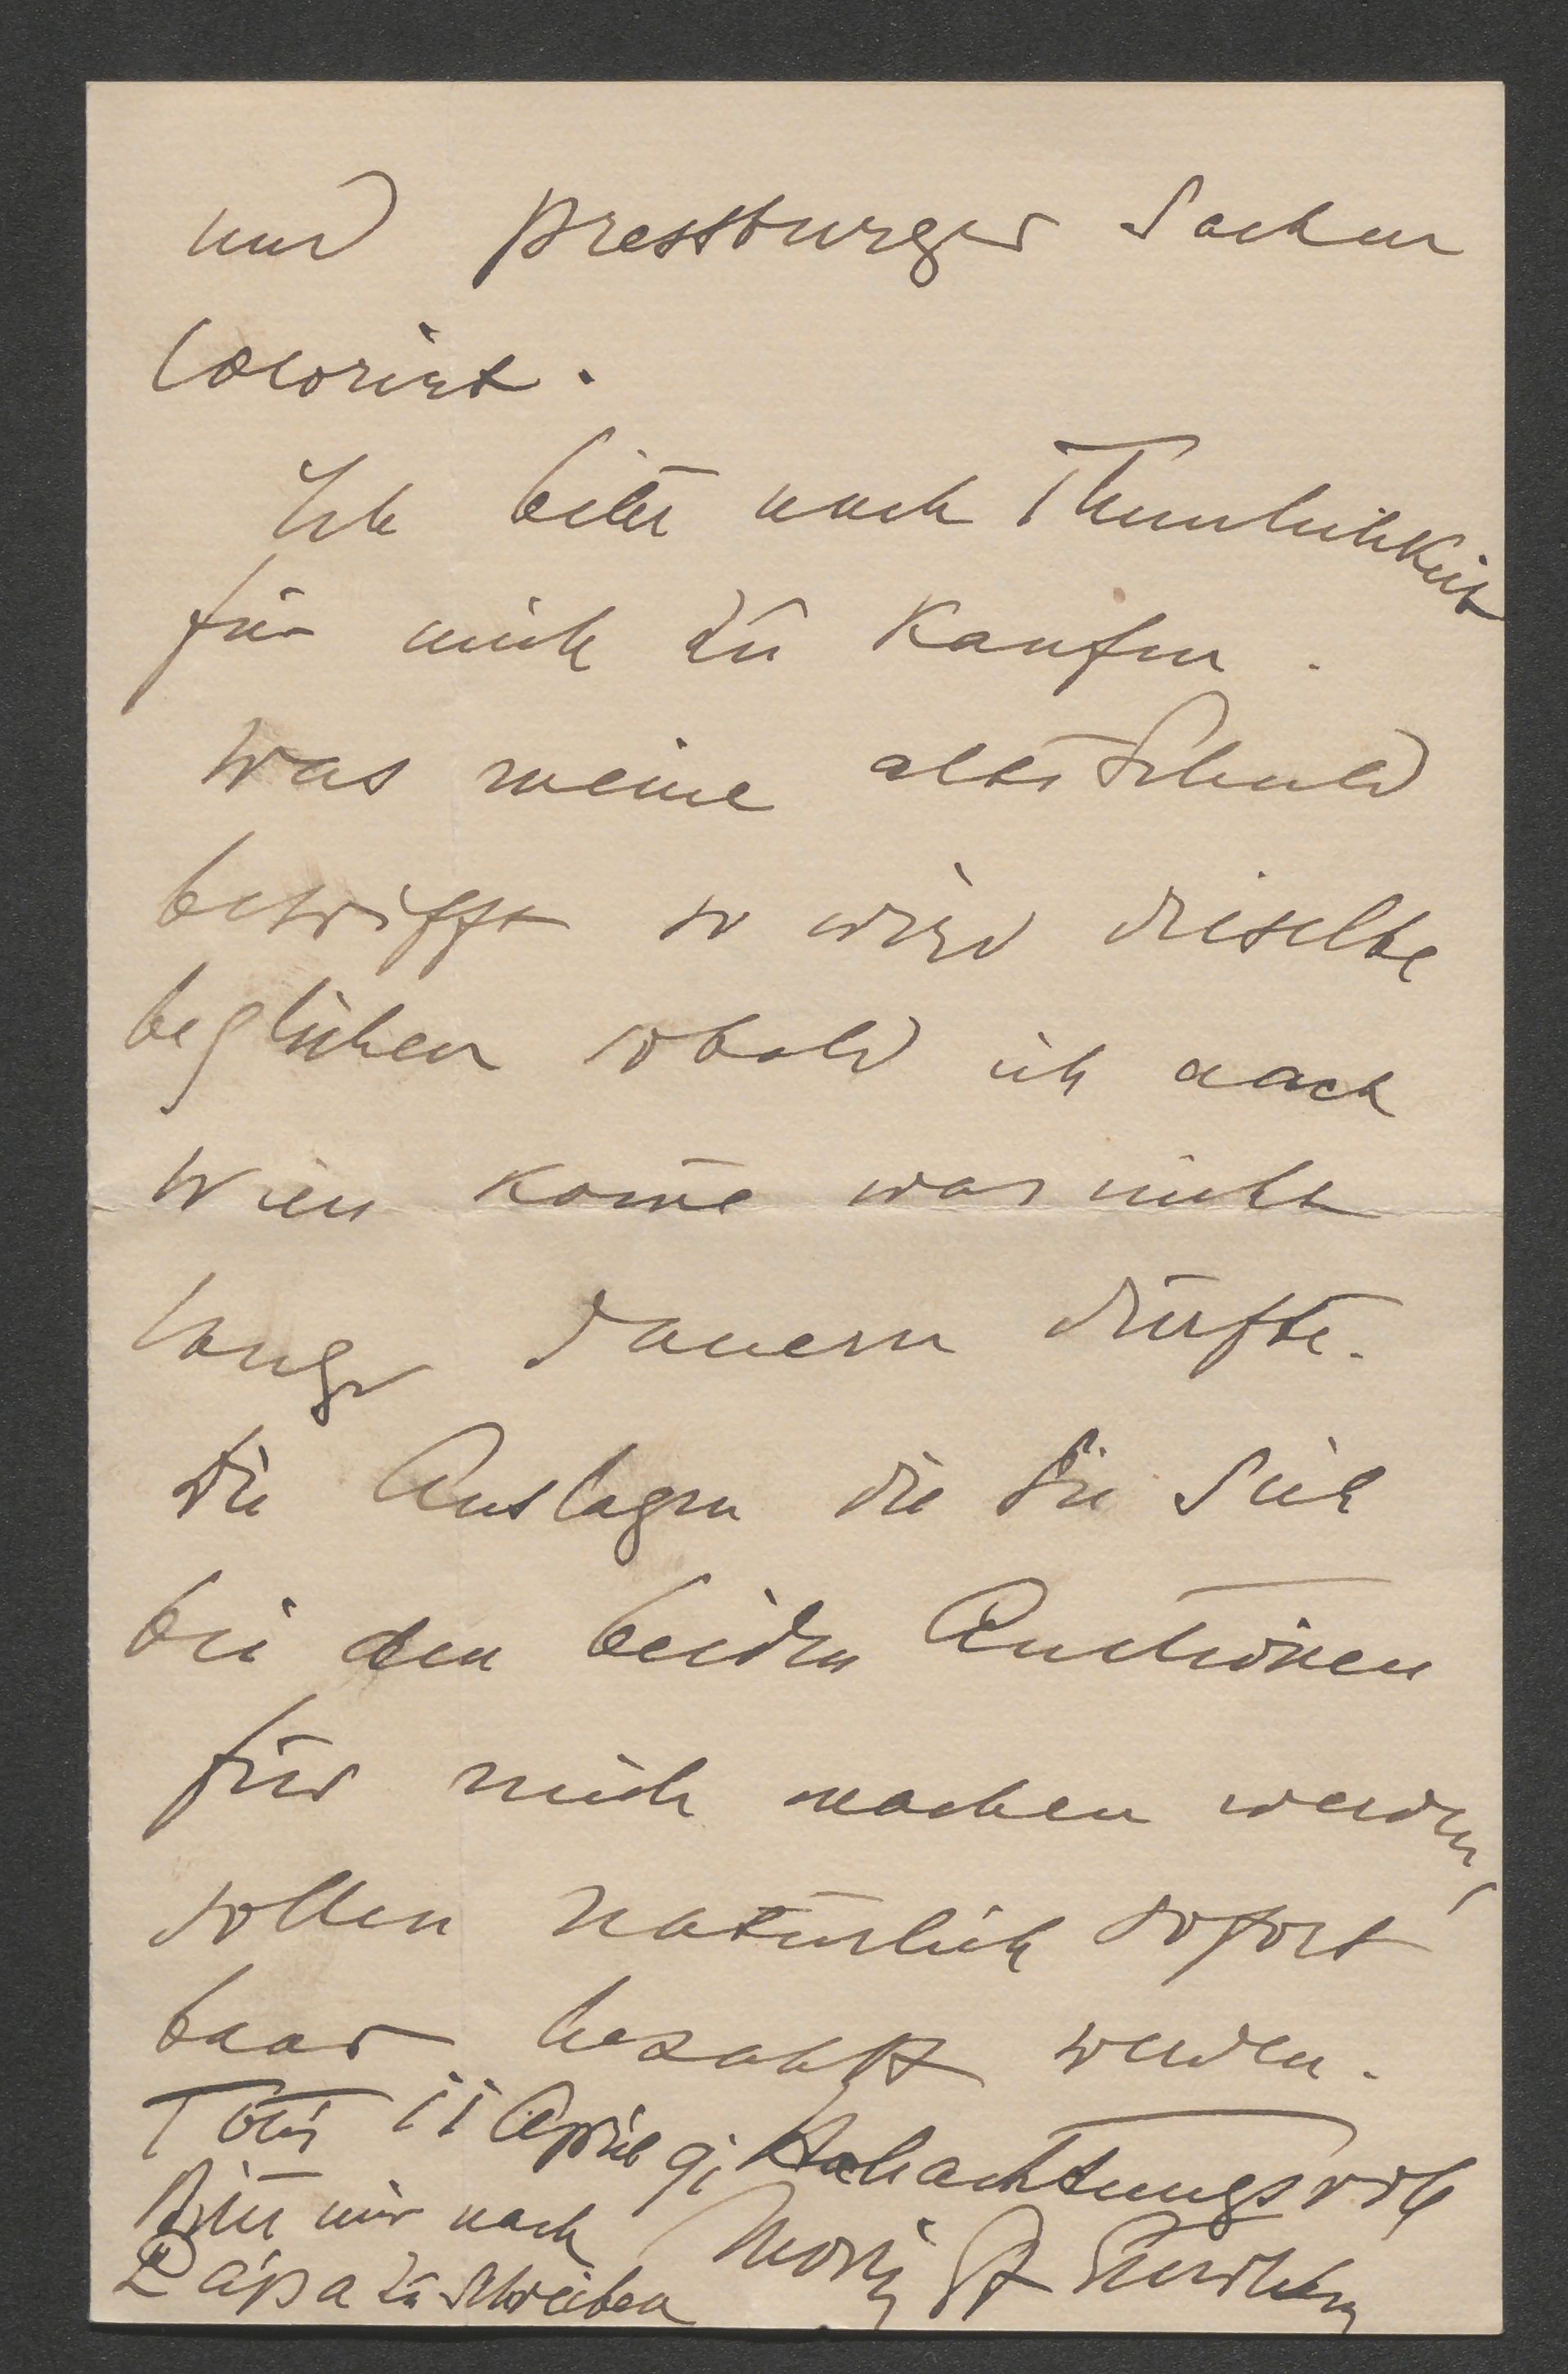 und Pressburger Sachen
colorirt.
Ich bitte nach Thunlichkeit
für mich zu kaufen.
Was meine alte Schuld
betrifft so wird dieselbe
beglichen sobald ich nach
Wien kom̄e was nicht
lange dauern dürfte.
Die Auslagen die Sie Sich
bei den beiden Auctionen
für mich machen werden,
sollen natürlich sofort
baar bezahlt werden.
Totis 11 April 91 Hochachtungsvoll
Bitte mir nach Moriz Gf
Pápa zu schreiben